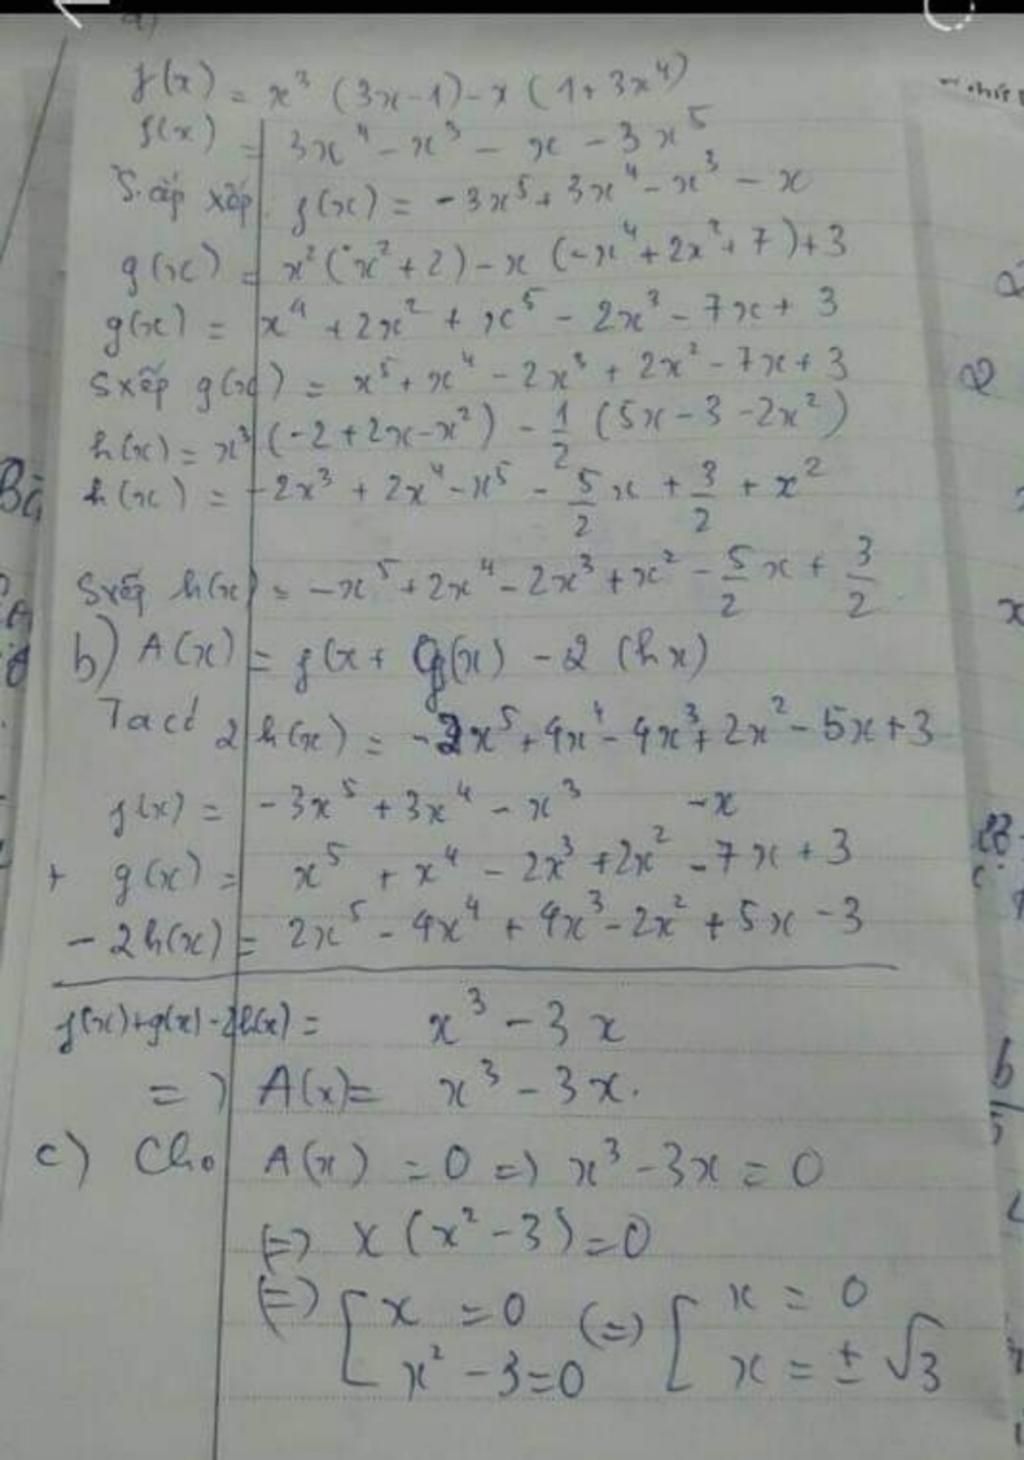 a)
f(x) = x³ (3x-1) - x (1+3x⁴)
f(x) = 3x⁴ - x³ - x - 3x⁵
S.cếp xếp f(x) = -3x⁵ + 3x⁴ - x³ - x
g(x) = x² (x² + 2) - x (-x⁴ + 2x² + 7) + 3
g(x) = x⁴ + 2x² + x⁵ - 2x³ - 7x + 3
Sxếp g(x) = x⁵ + x⁴ - 2x³ + 2x² - 7x + 3
h(x) = x³ (-2 + 2x - x²) - 1/2 (5x - 3 - 2x²)
h(x) = -2x³ + 2x⁴ - x⁵ - 5/2 x + 3/2 + x²
Sxếp h(x) = -x⁵ + 2x⁴ - 2x³ + x² - 5/2 x + 3/2
b) A(x) = f(x + g(x) - 2 (hx)
Ta có 2h(x) = -2x⁵ + 4x⁴ - 4x³ + 2x² - 5x + 3
f(x) = -3x⁵ + 3x⁴ - x³ - x
+ g(x) = x⁵ + x⁴ - 2x³ + 2x² - 7x + 3
- 2h(x) = 2x⁵ - 4x⁴ + 4x³ - 2x² + 5x - 3
f(x)+g(x)-2h(x) = x³ - 3x
=> A(x) = x³ - 3x.
c) Cho A(x) = 0 => x³ - 3x = 0
(=) x (x² - 3) = 0
(=) [ x = 0 (=) [ x = 0
x² - 3 = 0 x = ± √3